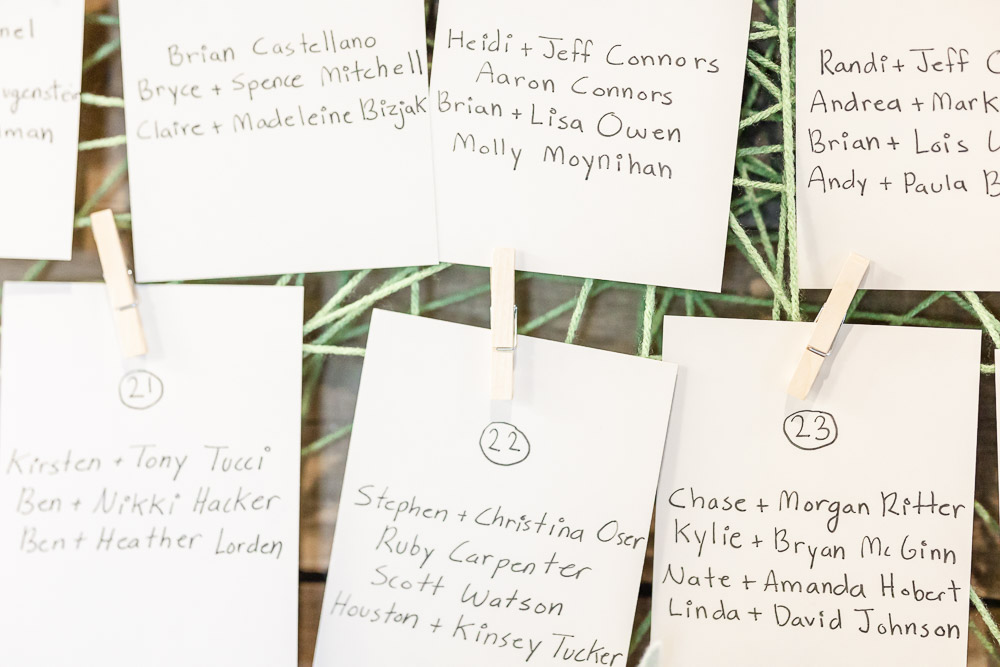 Brian Castellano
Bryce + Spence Mitchell
Claire + Madeleine Bizjak
Heidi + Jeff Connors
Aaron Connors
Brian + Lisa Owen
Molly Moynihan
Randi + Jeff
Andrea + Mark
Brian + Lois
Andy + Paula
21
Kirsten + Tony Tucci
Ben + Nikki Hacker
Ben + Heather Lorden
22
Stephen + Christina Oser
Ruby Carpenter
Scott Watson
Houston + Kinsey Tucker
23
Chase + Morgan Ritter
Kylie + Bryan McGinn
Nate + Amanda Hobert
Linda + David Johnson